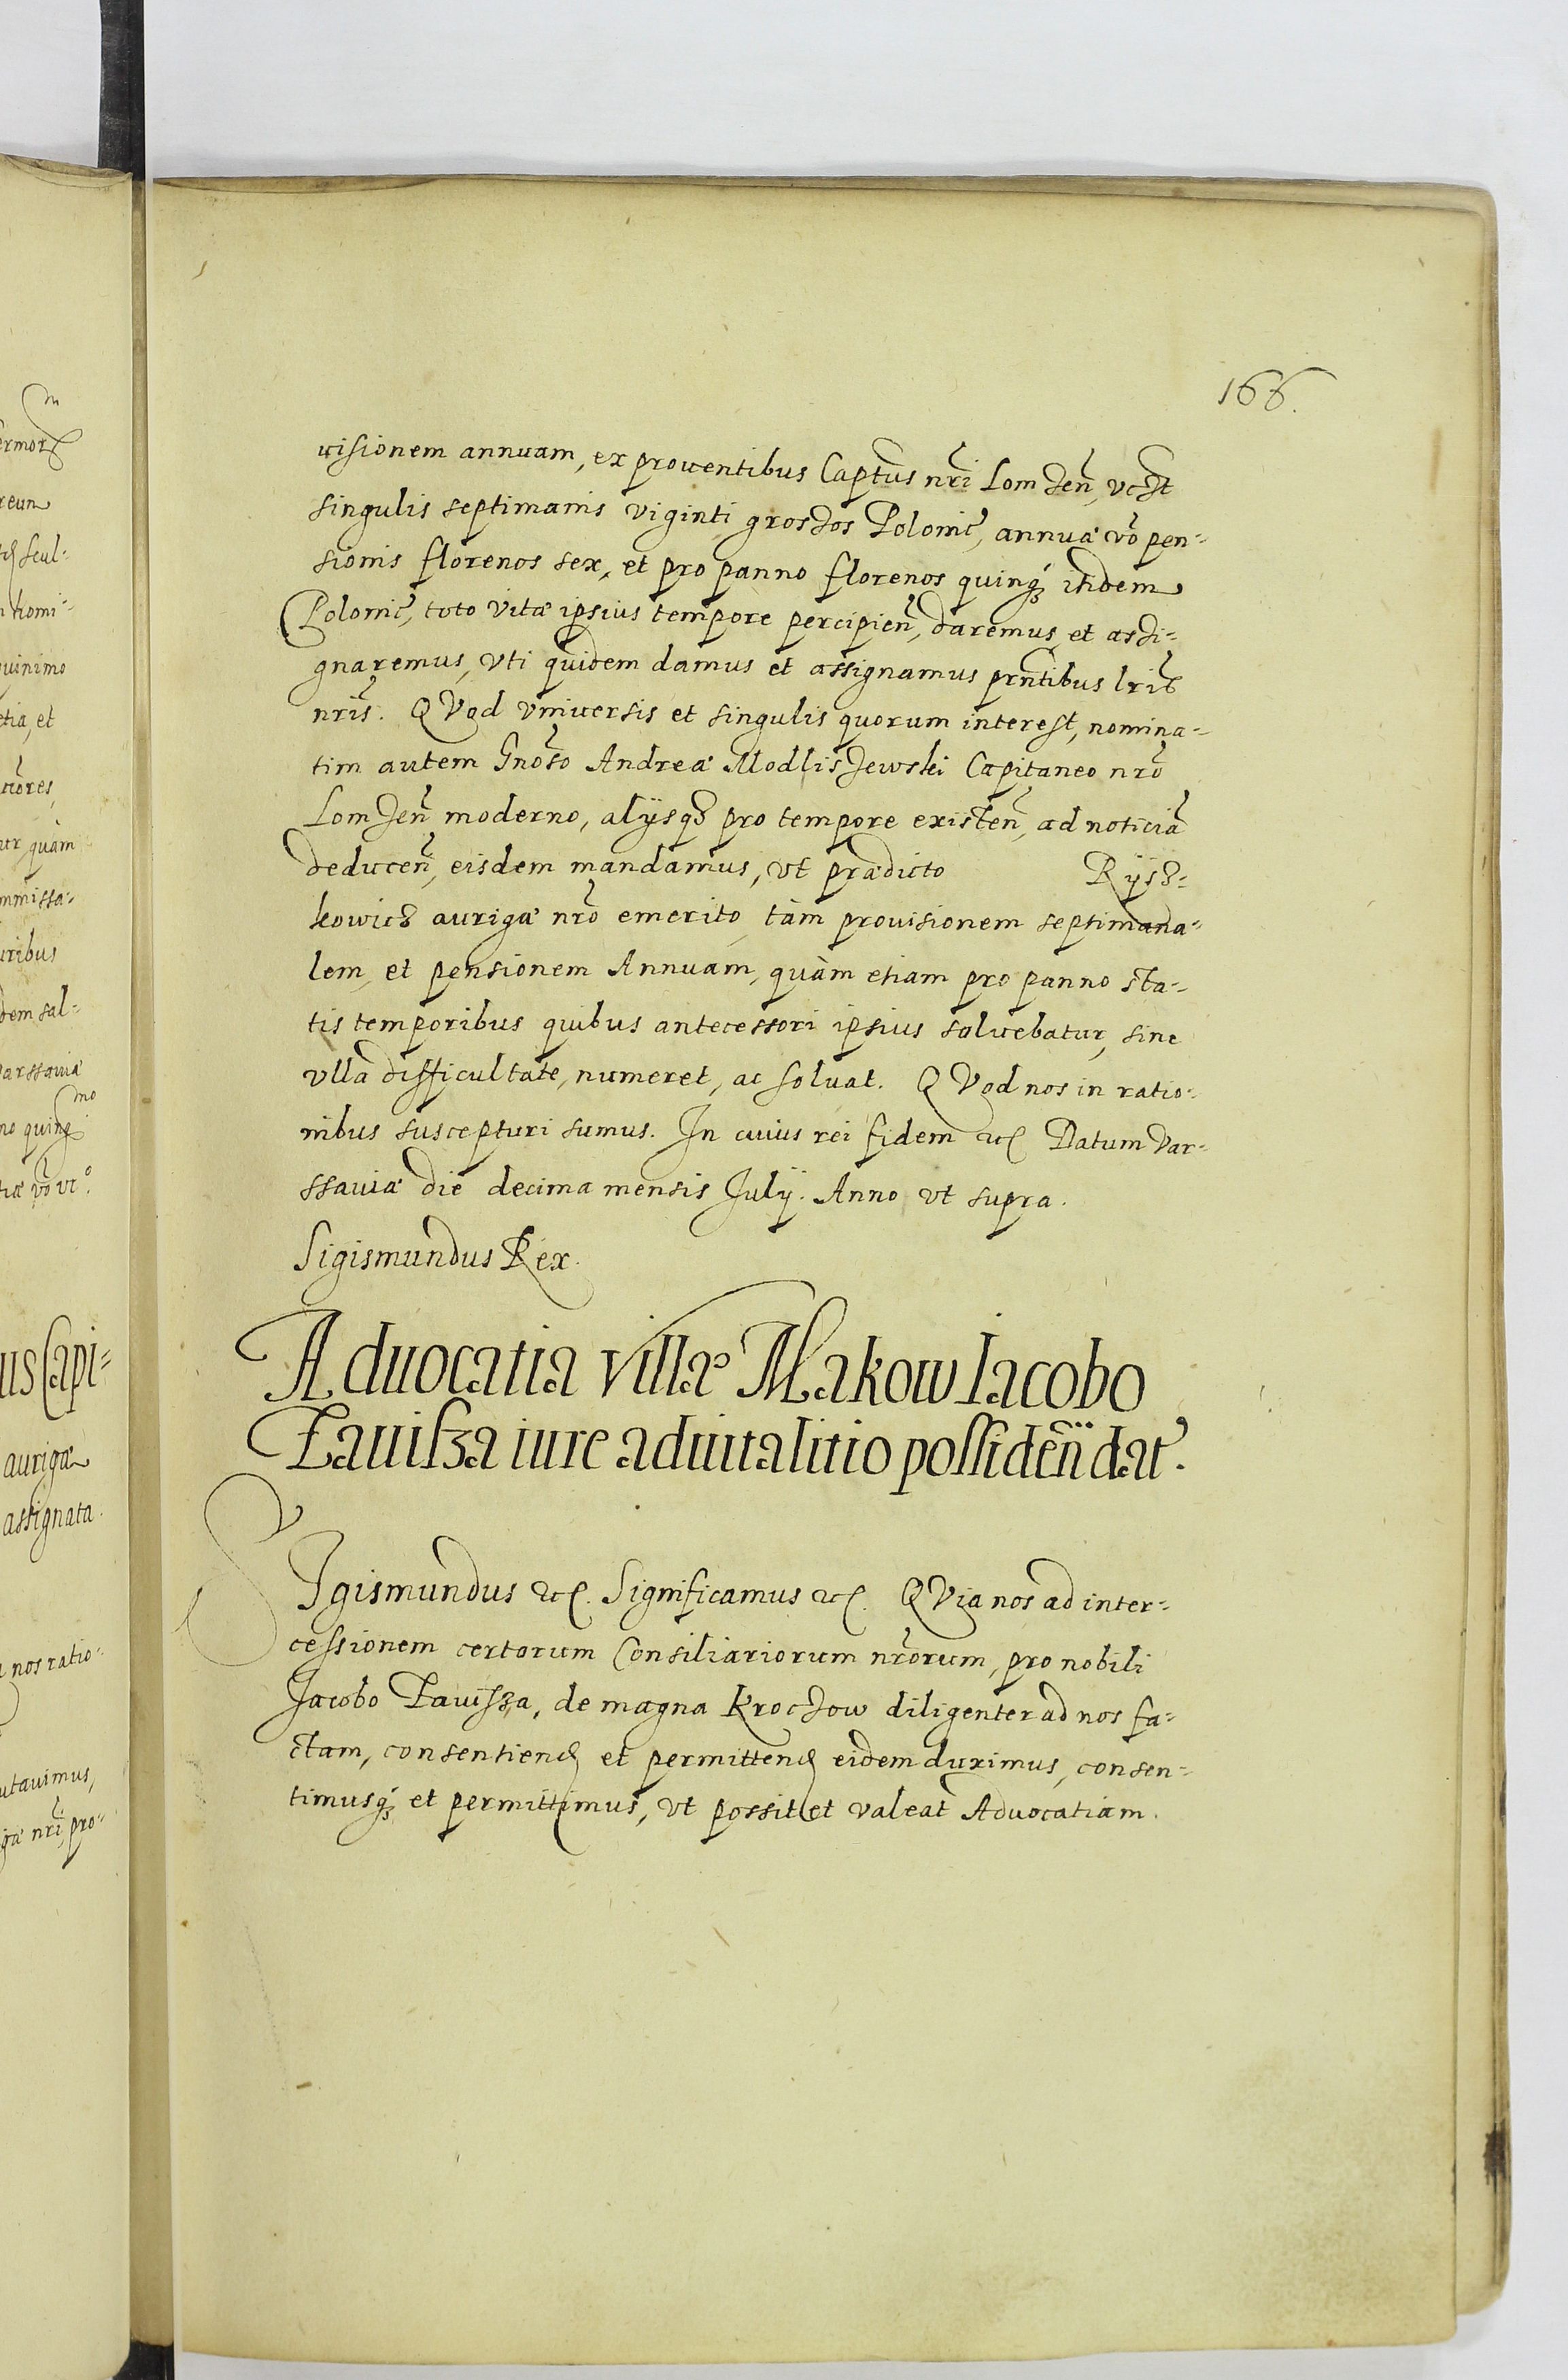 166.
uisionem annuam, ex prouentibus Capt̃us nr̃i Lomzeñ, vczt
singulis septimanis viginti grossos Polonic̃, annuæ vo᷃ pen-
sionis florenos sex, et pro panno florenos quinq́ꝫ itidem
Polonic̃, toto vitæ ipsius tempore percipieñ, daremus et assi-
gnaremus, vti quidem damus et assignamus prñtibus lris̃
nris̃. QVod vniuersis et singulis quorum interest, nomina-
tim autem Gnoso᷃ Andreæ Modliszewski Capitaneo nro᷃
Lomzeñ moderno, alÿsqꝫ pro tempore existeñ, ad noticia᷃
deduceñ, eisdem mandamus, vt prædicto Rÿsz-
kowicz aurigæ nro᷃ emerito tàm prouisionem septimana-
lem, et pensionem Annuam, quàm etiam pro panno sta-
tis temporibus quibus antecessori ipsius soluebatur, sine
vlla difficultate, numeret, ac soluat. QVod nos in ratio-
nibus suscepturi sumus. In cuius rei fidem etc Datum Var-
ssauiæ die decima mensis Julÿ. Anno vt supra.
Sigismundus Rex.
Aduocatia villæ Makow Iacobo
Zauisza iure aduitalitio possideñ dat̃.
SIgismundus etc. Significamus etc. QVia nos ad inter-
cessionem certorum Consiliariorum nrõrum, pro nobili
Jacobo Zauisza, de magna Kroczow diligenter ad nos fa-
ctam, consentiend et permittend eidem duximus, consen-
timusq́ꝫ et permittimus, vt possit et valeat Aduocatiam.